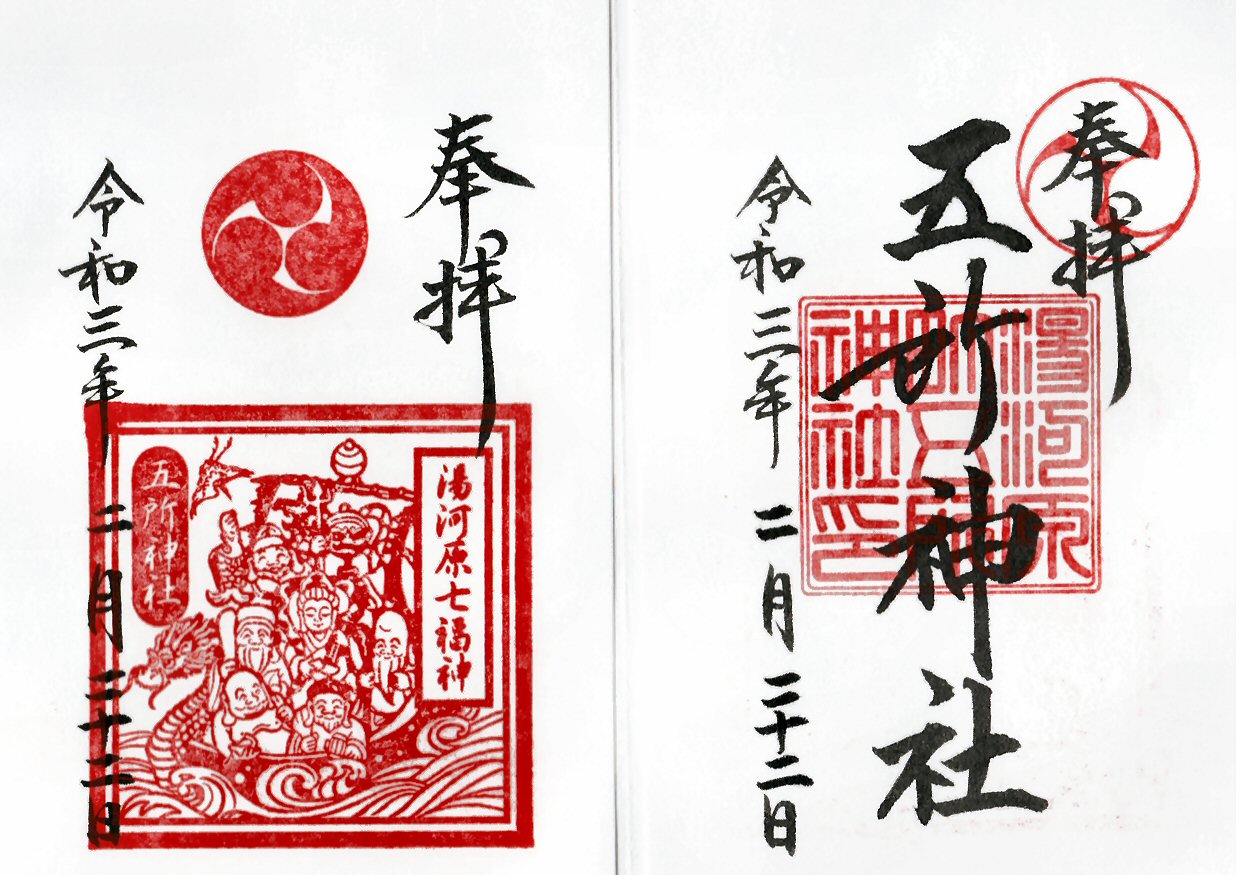 奉拝
五所神社
湯河原
五所
神社印
令和三年 二月 二十二日
奉拝
湯河原七福神
五所神社
令和三年 二月 二十二日